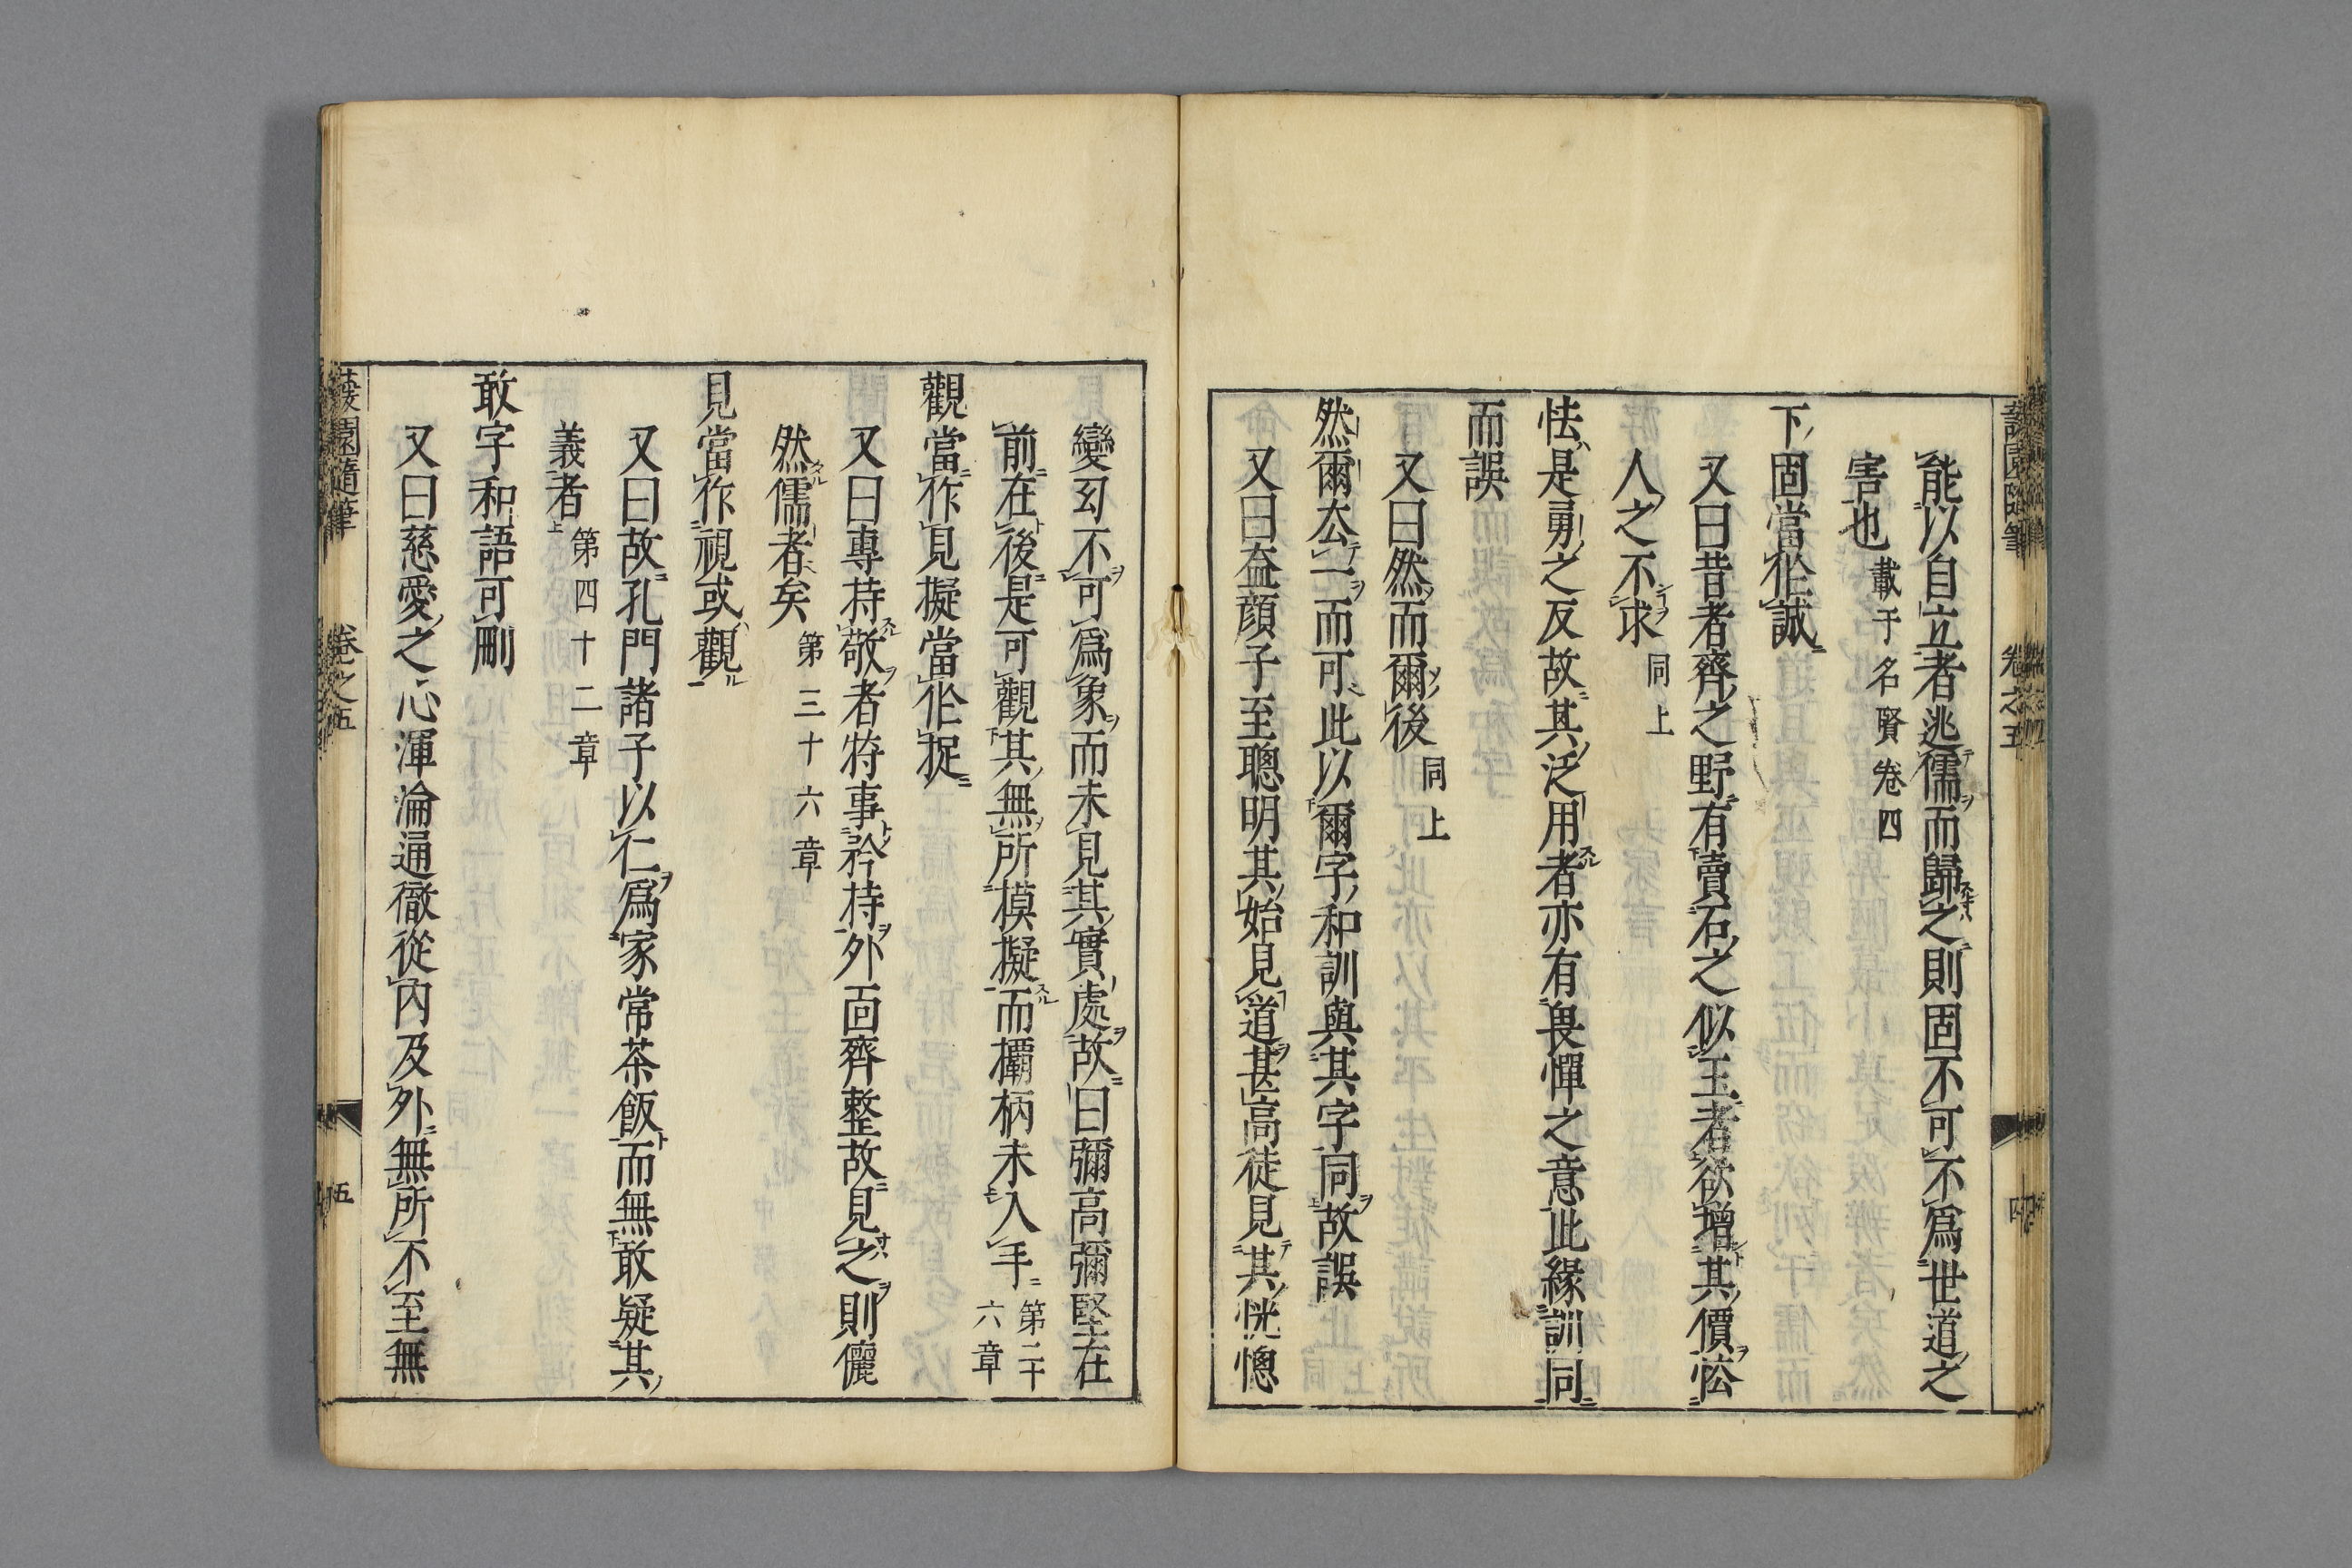 能以自立者逃儒而歸之則固不可不爲世道之
害也 載于名賢卷四
下固當作誠
又曰昔者齊之野有賣石之似玉者欲增其價恡
人之不求 同上
怯是勇之反故其泛用者亦有畏憚之意此緣訓同
而誤
又曰然而爾後 同上
然爾厺一而可此以爾字和訓與其字同故誤
又曰益顔子至聰明其始見道甚高徒見其恍惚
蘐園隨筆 卷之五 四
變幻不可爲象而未見其實處故曰彌高彌堅在
前在後是可觀其無所模擬而欛柄未入手 第二十六章
觀當作見擬當作捉
又曰專持敬者特事矜持外面齊整故見之則儼
然儒者矣 第三十六章
見當作視或觀
又曰故孔門諸子以仁爲家常茶飯而無敢疑其
義者 第四十二章
敢字和語可刪
又曰慈愛之心渾淪通徹從內及外無所不至無
蘐園隨筆 卷之五 五